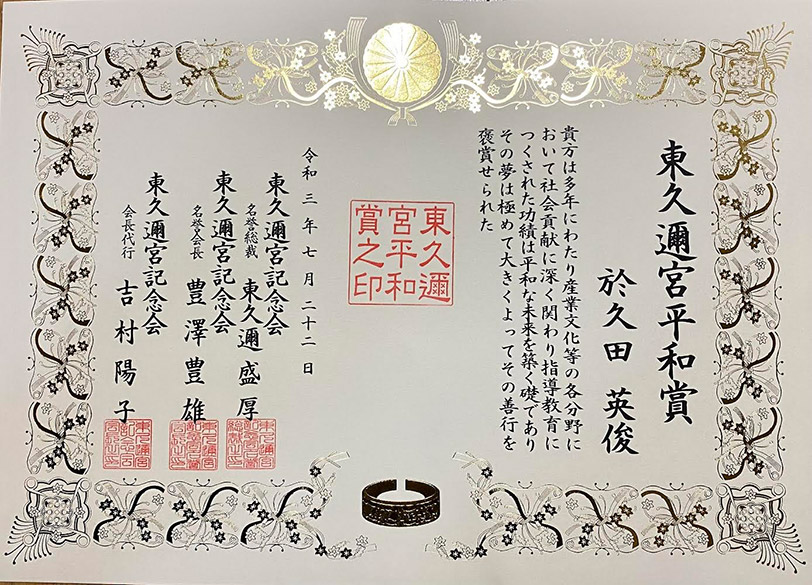 東久邇宮平和賞
於久田 英俊
貴方は多年にわたり産業文化等の各分野に
おいて社会貢献に深く関わり指導教育に
つくされた功績は平和な未来を築く礎であり
その夢は極めて大きくよってその善行を
褒賞せられた
東久邇
宮平和
賞之印
令和三年七月二十二日
東久邇宮記念会
名誉総裁 東久邇盛厚
東久邇宮記念会
名誉会長 豊澤豊雄
東久邇宮記念会
会長代行 吉村陽子